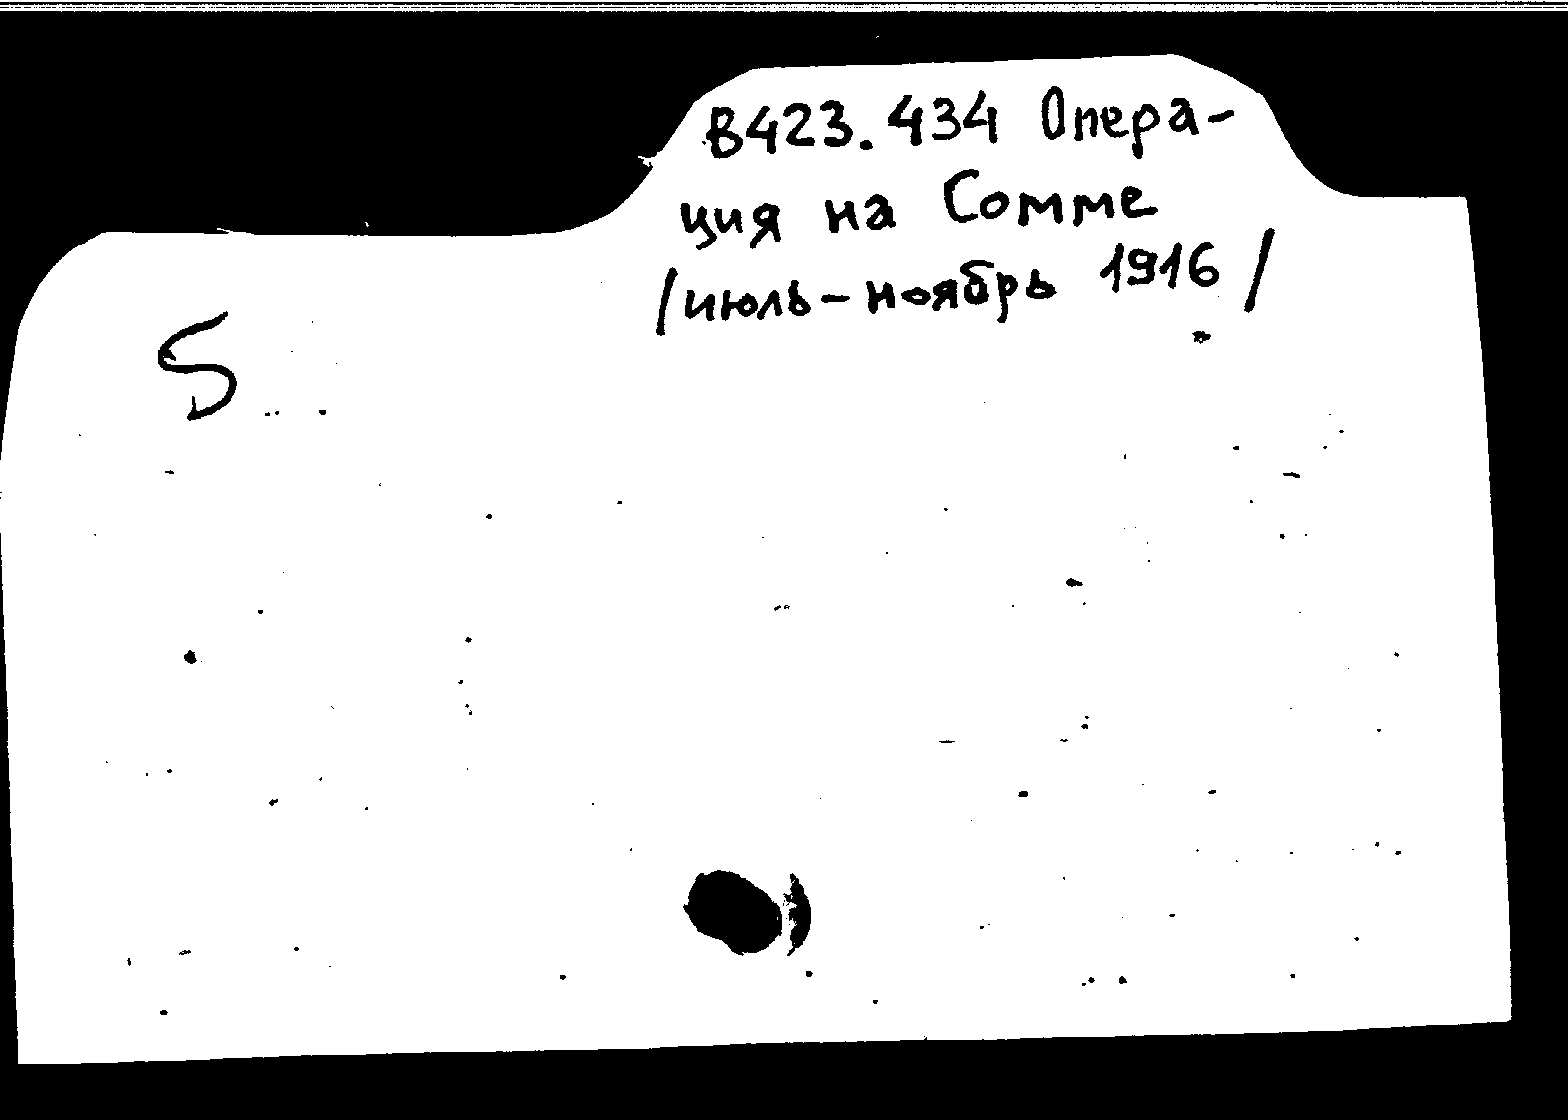 В423.434 Опера-
ция на Сомме
/июль-ноябрь 1916/
5